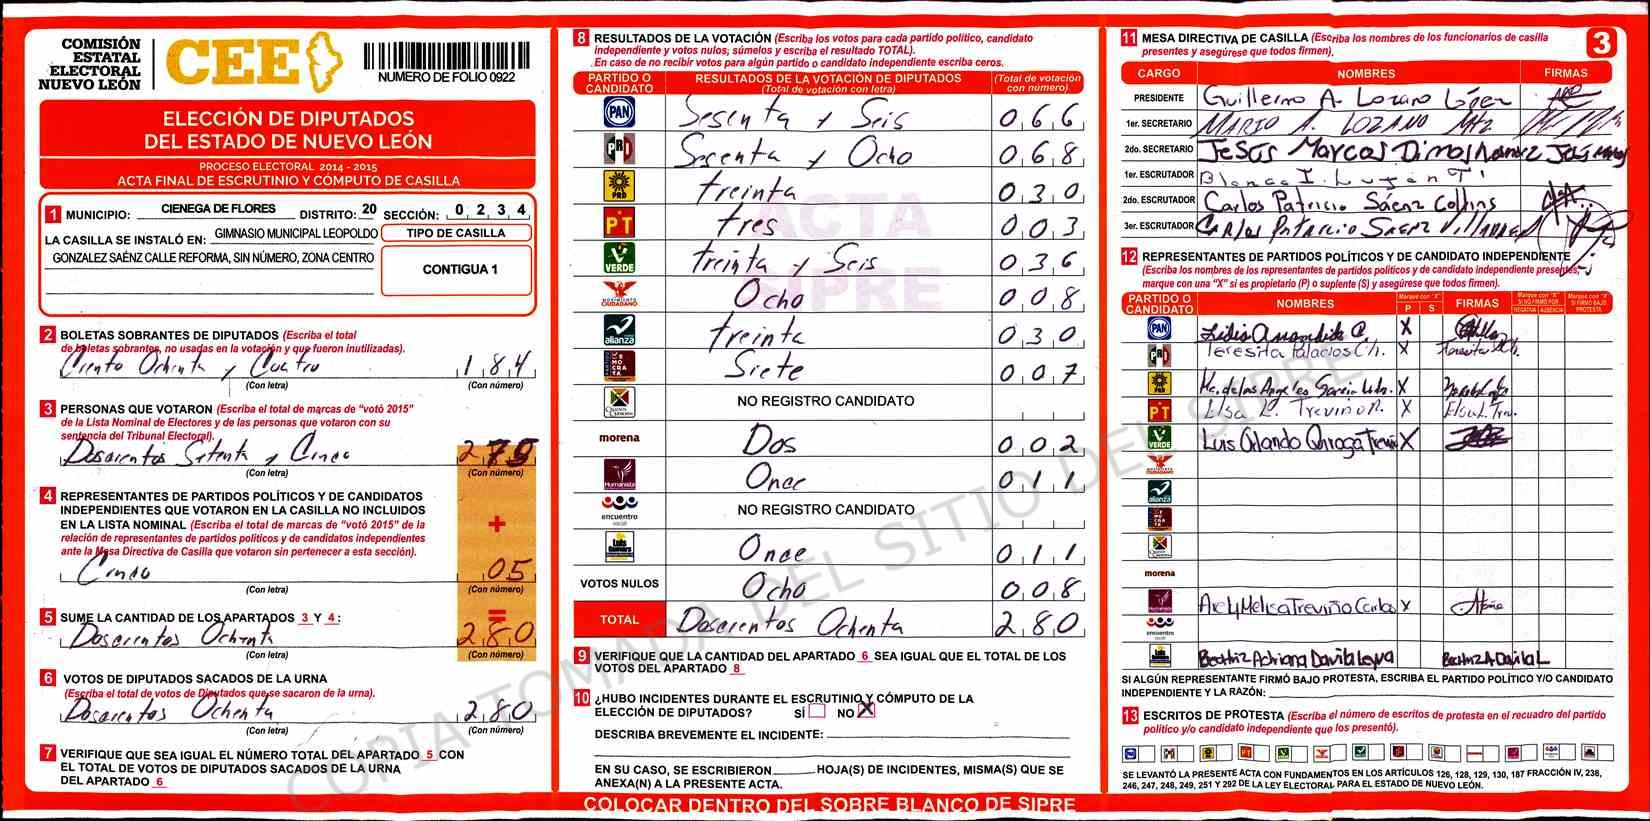 COMISIÓN
ESTATAL
ELECTORAL
NUEVO LEÓN
CEE
NUMERO DE FOLIO 0922
ELECCIÓN DE DIPUTADOS
DEL ESTADO DE NUEVO LEÓN
PROCESO ELECTORAL 2014 - 2015
ACTA FINAL DE ESCRUTINIO Y CÓMPUTO DE CASILLA
1 MUNICIPIO: CIENEGA DE FLORES DISTRITO: 20 SECCIÓN: 0 2 3 4
LA CASILLA SE INSTALÓ EN: GIMNASIO MUNICIPAL LEOPOLDO
GONZALEZ SAÉNZ CALLE REFORMA, SIN NÚMERO, ZONA CENTRO
TIPO DE CASILLA
CONTIGUA 1
2 BOLETAS SOBRANTES DE DIPUTADOS (Escriba el total
de boletas sobrantes, no usadas en la votación y que fueron inutilizadas).
Ciento Ochenta y Cuatro 1 8 4
(Con letra) (Con número)
3 PERSONAS QUE VOTARON (Escriba el total de marcas de “votó 2015”
de la Lista Nominal de Electores y de las personas que votaron con su
sentencia del Tribunal Electoral).
Doscientos Setenta y Cinco 2 7 5
(Con letra) (Con número)
4 REPRESENTANTES DE PARTIDOS POLÍTICOS Y DE CANDIDATOS
INDEPENDIENTES QUE VOTARON EN LA CASILLA NO INCLUIDOS
EN LA LISTA NOMINAL (Escriba el total de marcas de “votó 2015” de la
relación de representantes de partidos políticos y de candidatos independientes
ante la Mesa Directiva de Casilla que votaron sin pertenecer a esta sección).
+
Cinco 05
(Con letra) (Con número)
5 SUME LA CANTIDAD DE LOS APARTADOS 3 Y 4:
=
Doscientos Ochenta 2 8 0
(Con letra) (Con número)
6 VOTOS DE DIPUTADOS SACADOS DE LA URNA
(Escriba el total de votos de Diputados que se sacaron de la urna).
Doscientos Ochenta 2 8 0
(Con letra) (Con número)
7 VERIFIQUE QUE SEA IGUAL EL NÚMERO TOTAL DEL APARTADO 5 CON
EL TOTAL DE VOTOS DE DIPUTADOS SACADOS DE LA URNA
DEL APARTADO 6
8 RESULTADOS DE LA VOTACIÓN (Escriba los votos para cada partido político, candidato
independiente y votos nulos; súmelos y escriba el resultado TOTAL).
En caso de no recibir votos para algún partido o candidato independiente escriba ceros.
PARTIDO O CANDIDATO RESULTADOS DE LA VOTACIÓN DE DIPUTADOS (Total de votación con letra) (Total de votación con número)
PAN Sesenta y Seis 0 6 6
PRD Secenta y Ocho 0 6 8
PRD treinta 0 3 0
PT tres 0 0 3
VERDE treinta y Seis 0 3 6
MOVIMIENTO CIUDADANO Ocho 0 0 8
alianza treinta 0 3 0
Siete 0 0 7
NO REGISTRO CANDIDATO
morena Dos 0 0 2
Humanista Once 0 1 1
encuentro social NO REGISTRO CANDIDATO
Luis Once 0 1 1
VOTOS NULOS Ocho 0 0 8
TOTAL Doscientos Ochenta 2 8 0
ACTA
SIPRE
9 VERIFIQUE QUE LA CANTIDAD DEL APARTADO 6 SEA IGUAL QUE EL TOTAL DE LOS
VOTOS DEL APARTADO 8
10 ¿HUBO INCIDENTES DURANTE EL ESCRUTINIO Y CÓMPUTO DE LA
ELECCIÓN DE DIPUTADOS? SÍ NO X
DESCRIBA BREVEMENTE EL INCIDENTE:
EN SU CASO, SE ESCRIBIERON HOJA(S) DE INCIDENTES, MISMA(S) QUE SE
ANEXA(N) A LA PRESENTE ACTA.
COLOCAR DENTRO DEL SOBRE BLANCO DE SIPRE
11 MESA DIRECTIVA DE CASILLA (Escriba los nombres de los funcionarios de casilla
presentes y asegúrese que todos firmen).
3
CARGO NOMBRES FIRMAS
PRESIDENTE Guillermo A. Lozano López
1er. SECRETARIO MARIO A. LOZANO Mtz.
2do. SECRETARIO Jesús Marcos
1er. ESCRUTADOR Blanca I
2do. ESCRUTADOR Carlos Patricio Sáenz Collins
3er. ESCRUTADOR Carlos Patricio Saenz Villarreal
12 REPRESENTANTES DE PARTIDOS POLÍTICOS Y DE CANDIDATO INDEPENDIENTE
(Escriba los nombres de los representantes de partidos políticos y de candidato independiente presentes,
marque con una “X” si es propietario (P) o suplente (S) y asegúrese que todos firmen).
PARTIDO O CANDIDATO NOMBRES Marque con “X” P S FIRMAS Marque con “X” SI NO FIRMÓ POR NEGATIVA AUSENCIA Marque con “X” SI FIRMÓ BAJO PROTESTA
PAN X
PRD Teresita Palacios Ch. X
PRD Ma. de los Angeles Garcia X
PT Elsa Treviño X
VERDE Luis Orlando Quiroga X
alianza
morena
Humanista Arely Melisa Treviño Cantu X
encuentro
Beatriz Adriana Davila Leyva Beatriz A Davila L
SI ALGÚN REPRESENTANTE FIRMÓ BAJO PROTESTA, ESCRIBA EL PARTIDO POLÍTICO Y/O CANDIDATO
INDEPENDIENTE Y LA RAZÓN:
13 ESCRITOS DE PROTESTA (Escriba el número de escritos de protesta en el recuadro del partido
político y/o candidato independiente que los presentó).
SE LEVANTÓ LA PRESENTE ACTA CON FUNDAMENTOS EN LOS ARTÍCULOS 126, 128, 129, 130, 187 FRACCIÓN IV, 238,
246, 247, 248, 249, 251 Y 292 DE LA LEY ELECTORAL PARA EL ESTADO DE NUEVO LEÓN.
COPIA TOMADA DEL SITIO DEL SIPRE